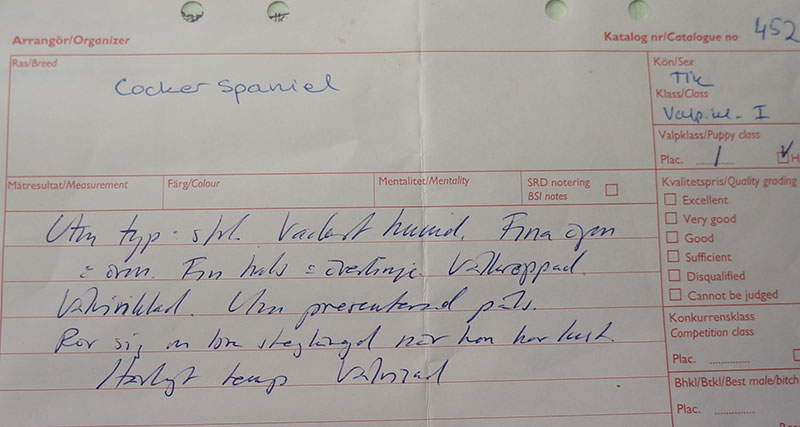 Arrangör/Organizer
Katalog nr/Catalogue no 452
Ras/Breed
Cocker Spaniel
Kön/Sex
Tik
Klass/Class
Valp.kl. I
Valpklass/Puppy class
Plac. 1 H
Mätresultat/Measurement
Färg/Colour
Mentalitet/Mentality
SRD notering
BSI notes
Kvalitetspris/Quality grading
Excellent
Very good
Good
Sufficient
Disqualified
Cannot be judged
Utm typ · strl. Vackert huvud. Fina ögon
= öron. Fin hals = överlinje. Välkroppad.
Välvinklad. Utm presenterad päls.
Rör sig m bra steglängd när hon har lust.
Härligt temp Välvisad
Konkurrensklass
Competition class
Plac.
Bhkl/Btkl/Best male/bitch
Plac.